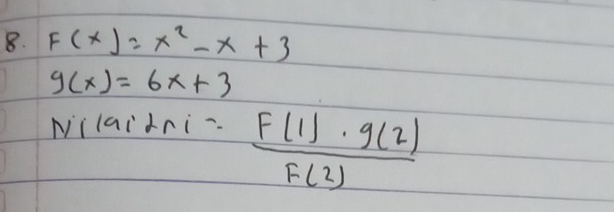 8. F(x) = x² - x + 3
g(x) = 6x + 3
Nilai dri = F(1) . g(2)
F(2)